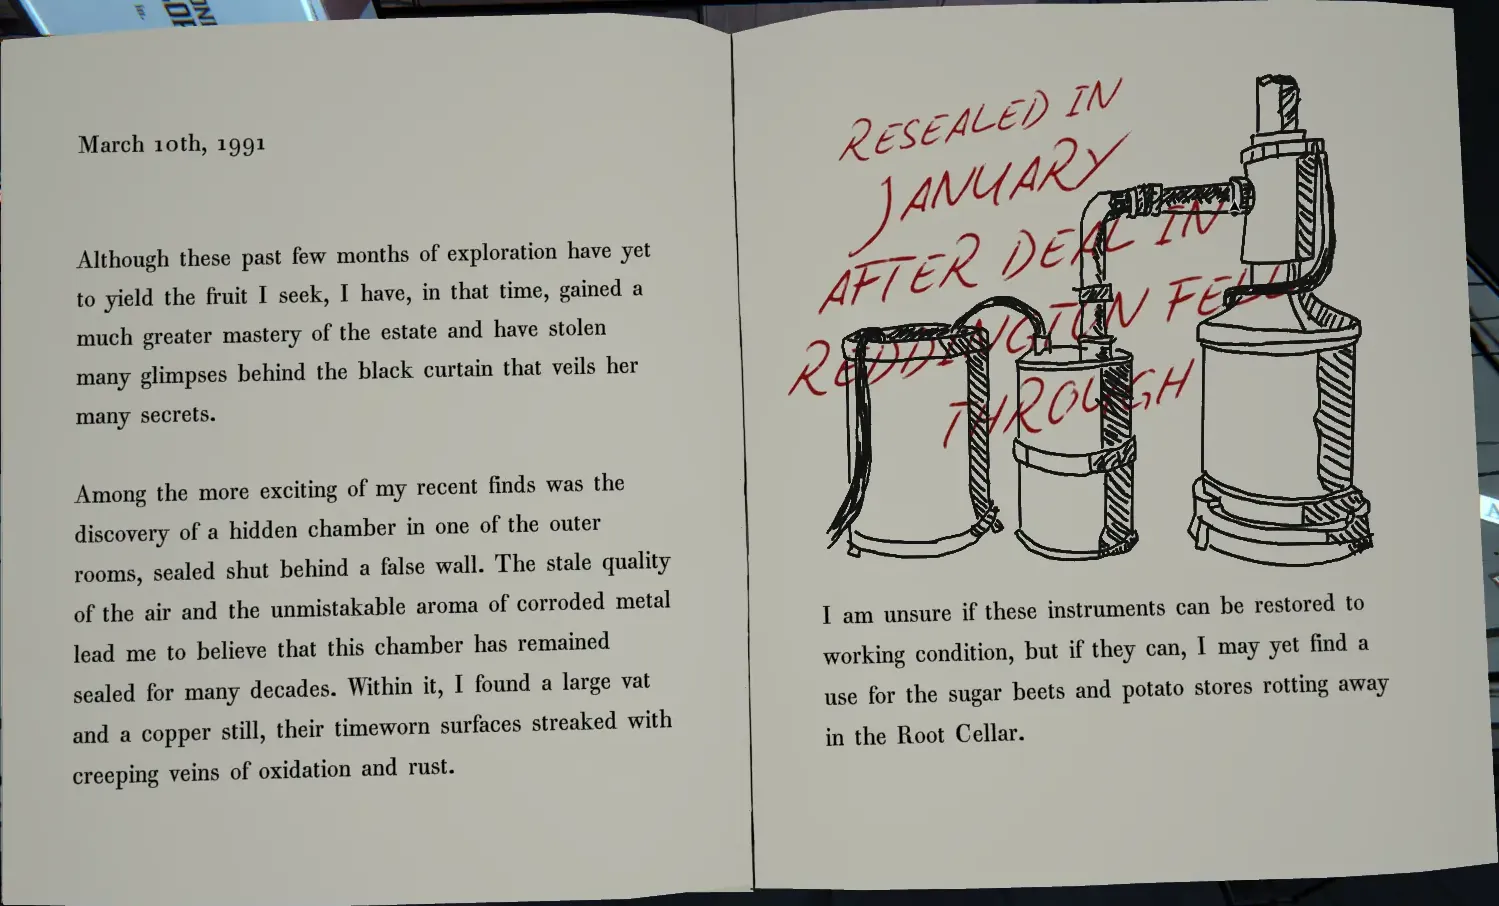 March 10th, 1991
Although these past few months of exploration have yet
to yield the fruit I seek, I have, in that time, gained a
much greater mastery of the estate and have stolen
many glimpses behind the black curtain that veils her
many secrets.
Among the more exciting of my recent finds was the
discovery of a hidden chamber in one of the outer
rooms, sealed shut behind a false wall. The stale quality
of the air and the unmistakable aroma of corroded metal
lead me to believe that this chamber has remained
sealed for many decades. Within it, I found a large vat
and a copper still, their timeworn surfaces streaked with
creeping veins of oxidation and rust.
RESEALED IN
JANUARY
AFTER DEAL IN
REDDINGTON FELL
THROUGH
I am unsure if these instruments can be restored to
working condition, but if they can, I may yet find a
use for the sugar beets and potato stores rotting away
in the Root Cellar.